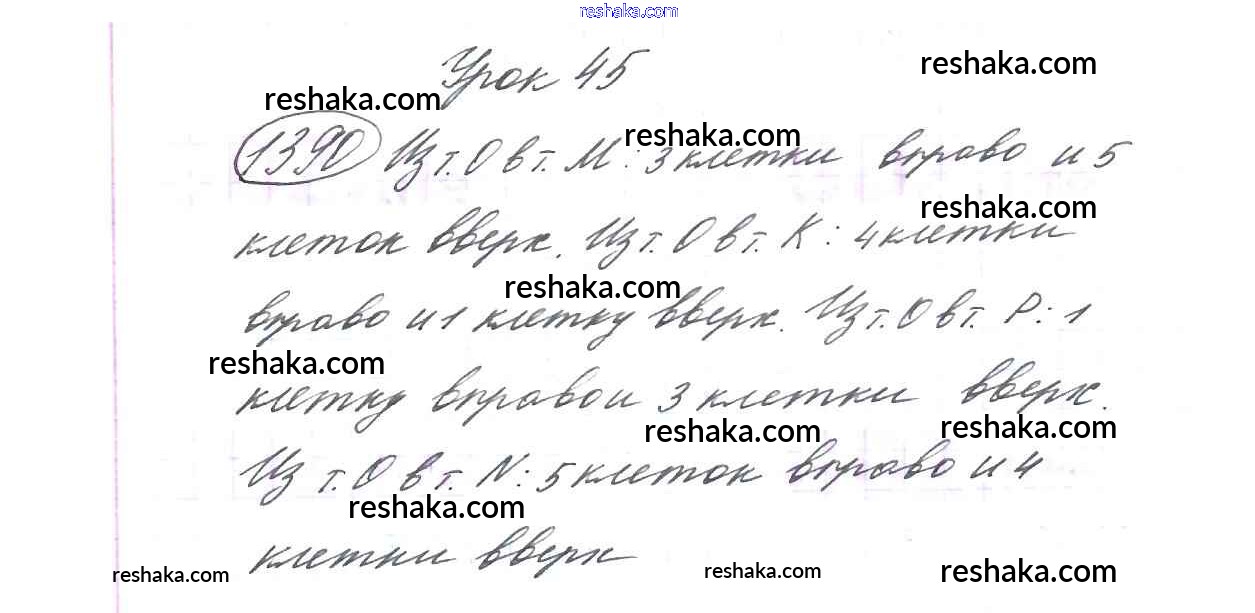 reshaka.com
Урок 45
reshaka.com
reshaka.com
1390 Из т. О в т. М: 3 клетки вправо и 5
reshaka.com
клеток вверх. Из т. О в т. К: 4 клетки
reshaka.com
reshaka.com
вправо и 1 клетку вверх. Из т. О в т. Р: 1
reshaka.com
клетку вправо и 3 клетки вверх.
reshaka.com
reshaka.com
Из т. О в т. N: 5 клеток вправо и 4
reshaka.com
клетки вверх
reshaka.com
reshaka.com
reshaka.com